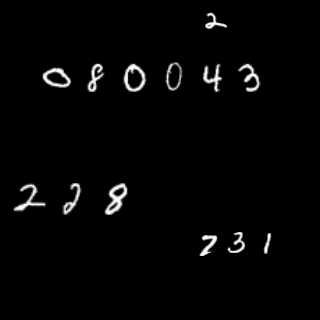 2
080043
228
231